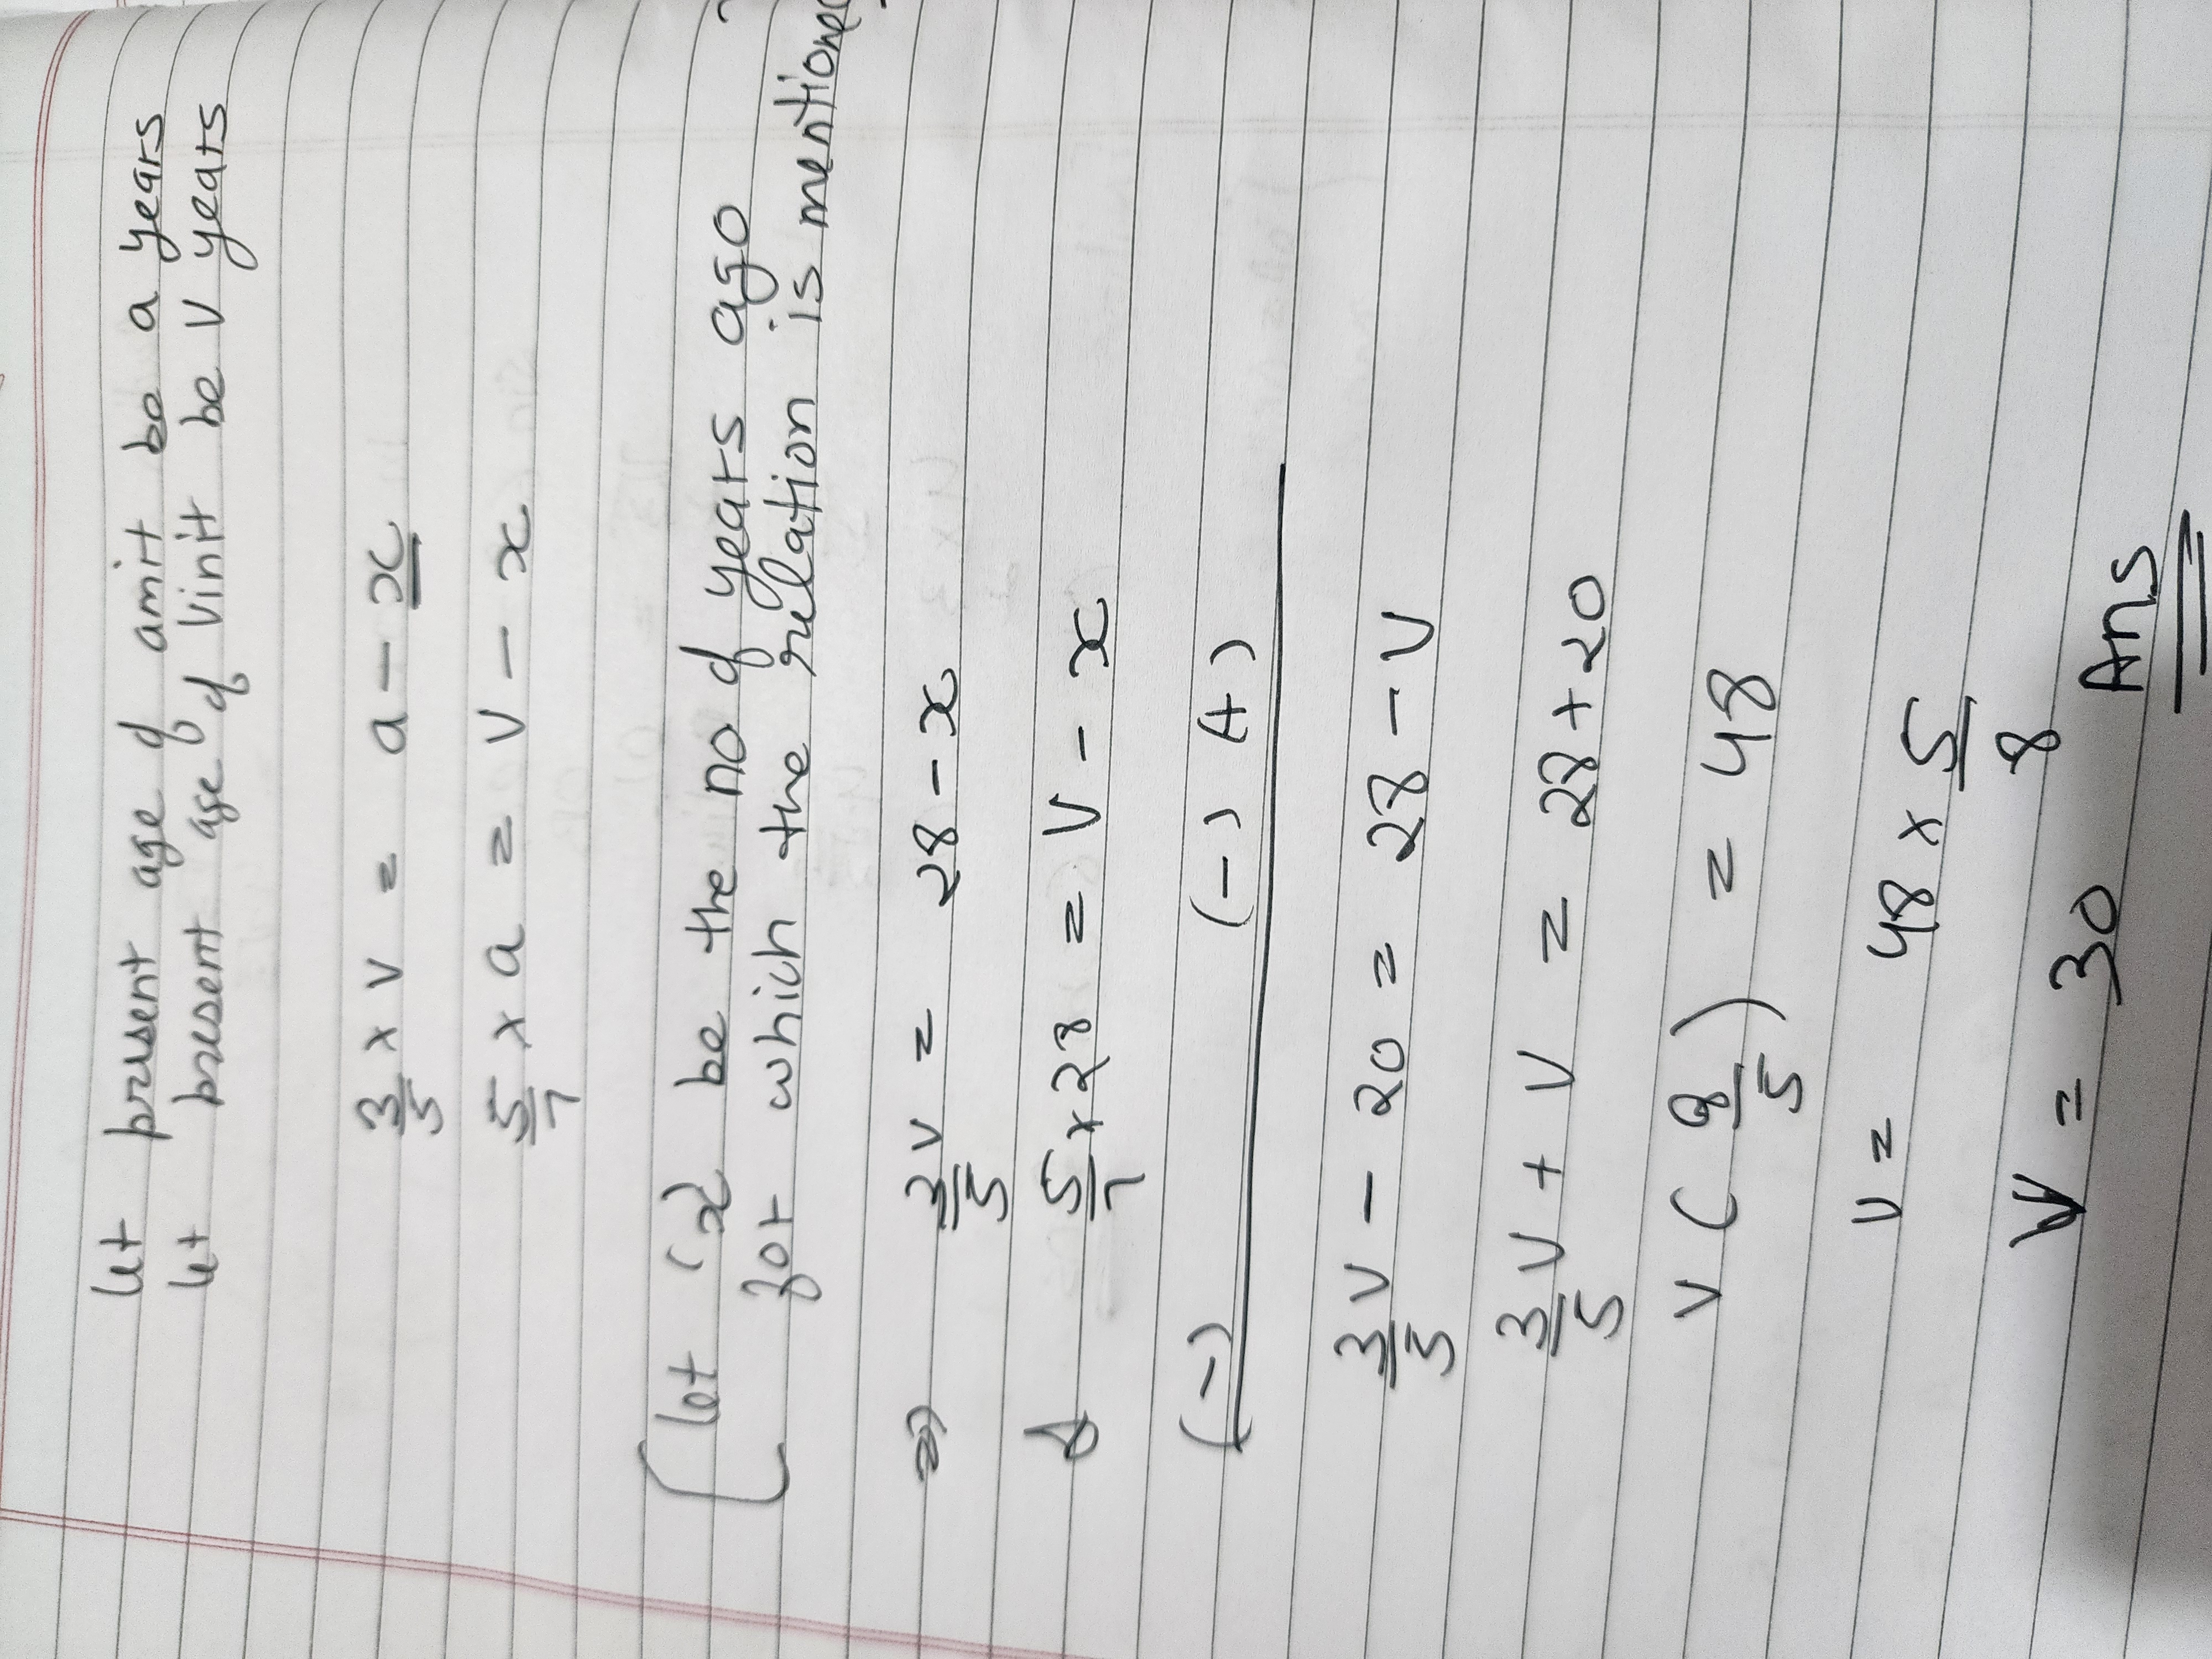 let present age of amit be a years
let present age of Vinit be V years
3/5 x V = a - x
5/7 x a = V - x
(let 'x' be the no of years ago
for which the relation is mentioned
=) 3/5 V = 28 - x
& 5/7 x 28 = V - x
(-) (-) (+)
3/5 V - 20 = 28 - V
3/5 V + V = 28 + 20
V (8/5) = 48
V = 48 x 5/8
V = 30 Ans